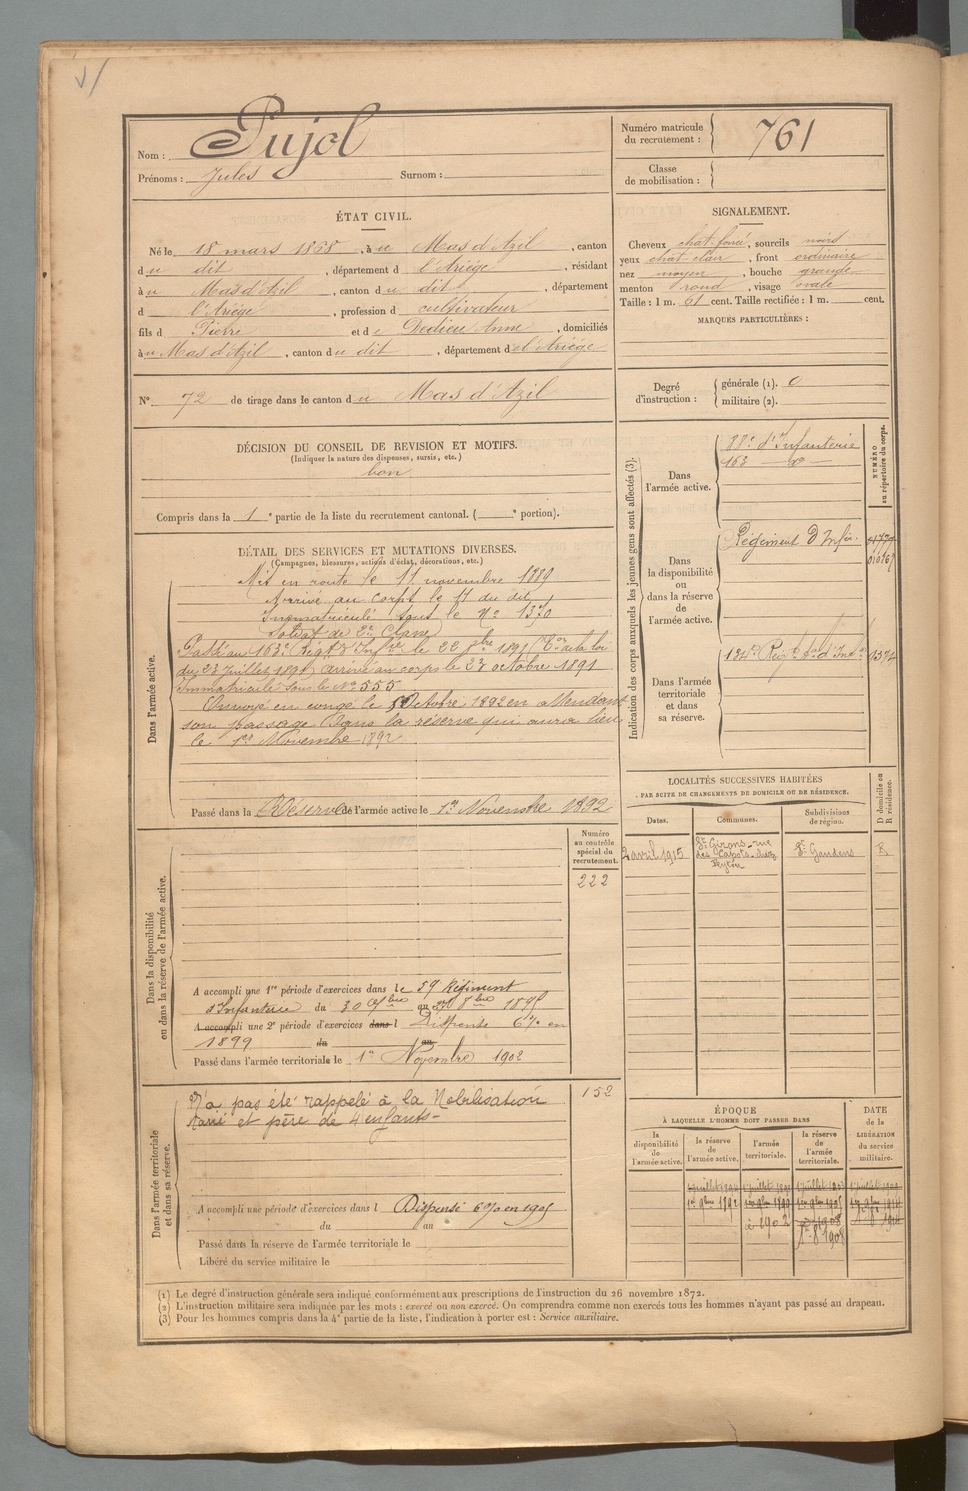 Nom : Pujol
Prénoms : Jules Surnom :
Numéro matricule du recrutement : 761
Classe de mobilisation :
ÉTAT CIVIL.
Né le 18 mars 1868, à u Mas d'Azil, canton
d u dit, département d l'Ariége, résidant
à u Mas d'Azil, canton d u dit, département
d l'Ariége, profession d cultivateur
fils d Pierre et d e Dedieu Anne, domiciliés
à u Mas d'Azil, canton d u dit, département d el'Ariége
SIGNALEMENT.
Cheveux chat-foncé, sourcils noirs
yeux chat-clair, front ordinaire
nez moyen, bouche grande
menton rond, visage ovale
Taille : 1 m. 61 cent. Taille rectifiée : 1 m. cent.
MARQUES PARTICULIÈRES :
N° 72 de tirage dans le canton d u Mas d'Azil
Degré d'instruction :
générale (1). 0
militaire (2).
DÉCISION DU CONSEIL DE REVISION ET MOTIFS.
(Indiquer la nature des dispenses, sursis, etc.)
bon
Compris dans la 1e partie de la liste du recrutement cantonal. ( e portion).
DÉTAIL DES SERVICES ET MUTATIONS DIVERSES.
(Campagnes, blessures, actions d'éclat, décorations, etc.)
Dans l'armée active.
Mis en route le 11 novembre 1889
Arrivé au corps le 11 du dit
Immatriculé sous le N° 1370
Soldat de 2e Classe
Passé au 163e Régt d'Infie le 22 8bre 1891
du 23 Juillet 1891 arrivé au corps le 23 octobre 1891
Immatriculé sous le N° 555
Envoyé en congé le Octobre 1892 en attendant
son passage dans la réserve qui aura lieu
le 1er Novembre 1892
Passé dans la Réserve de l'armée active le 1er Novembre 1892
Indication des corps auxquels les jeunes gens sont affectés (3).
NUMÉRO au répertoire du corps.
Dans l'armée active.
88e d'Infanterie
163 - do -
Dans la disponibilité ou dans la réserve de l'armée active.
Régiment d'Infie.
Dans l'armée territoriale et dans sa réserve.
LOCALITÉS SUCCESSIVES HABITÉES
PAR SUITE DE CHANGEMENTS DE DOMICILE OU DE RÉSIDENCE.
D domicile ou R résidence.
Dates. Communes. Subdivisions de région.
2 avril 1915 St Girons - rue St Gaudens R
Dans la disponibilité ou dans la réserve de l'armée active.
Numéro au contrôle spécial du recrutement.
222
A accompli une 1re période d'exercices dans le 59 Régiment
d'Infanterie du 30 au 8bre 1895
A accompli une 2e période d'exercices dans l Dispensé 6% en
1899 du au
Passé dans l'armée territoriale le 1er Novembre 1902
Dans l'armée territoriale et dans sa réserve.
152
N'a pas été rappelé à la Mobilisation
Marié et père de 4 enfants -
A accompli une période d'exercices dans l Dispensé 6% en 1905
du au
Passé dans la réserve de l'armée territoriale le
Libéré du service militaire le
ÉPOQUE
À LAQUELLE L'HOMME DOIT PASSER DANS
la disponibilité de l'armée active.
la réserve de l'armée active.
l'armée territoriale.
la réserve de l'armée territoriale.
DATE de la LIBÉRATION du service militaire.
(1) Le degré d'instruction générale sera indiqué conformément aux prescriptions de l'instruction du 26 novembre 1872.
(2) L'instruction militaire sera indiquée par les mots : exercé ou non exercé. On comprendra comme non exercés tous les hommes n'ayant pas passé au drapeau.
(3) Pour les hommes compris dans la 4e partie de la liste, l'indication à porter est : Service auxiliaire.